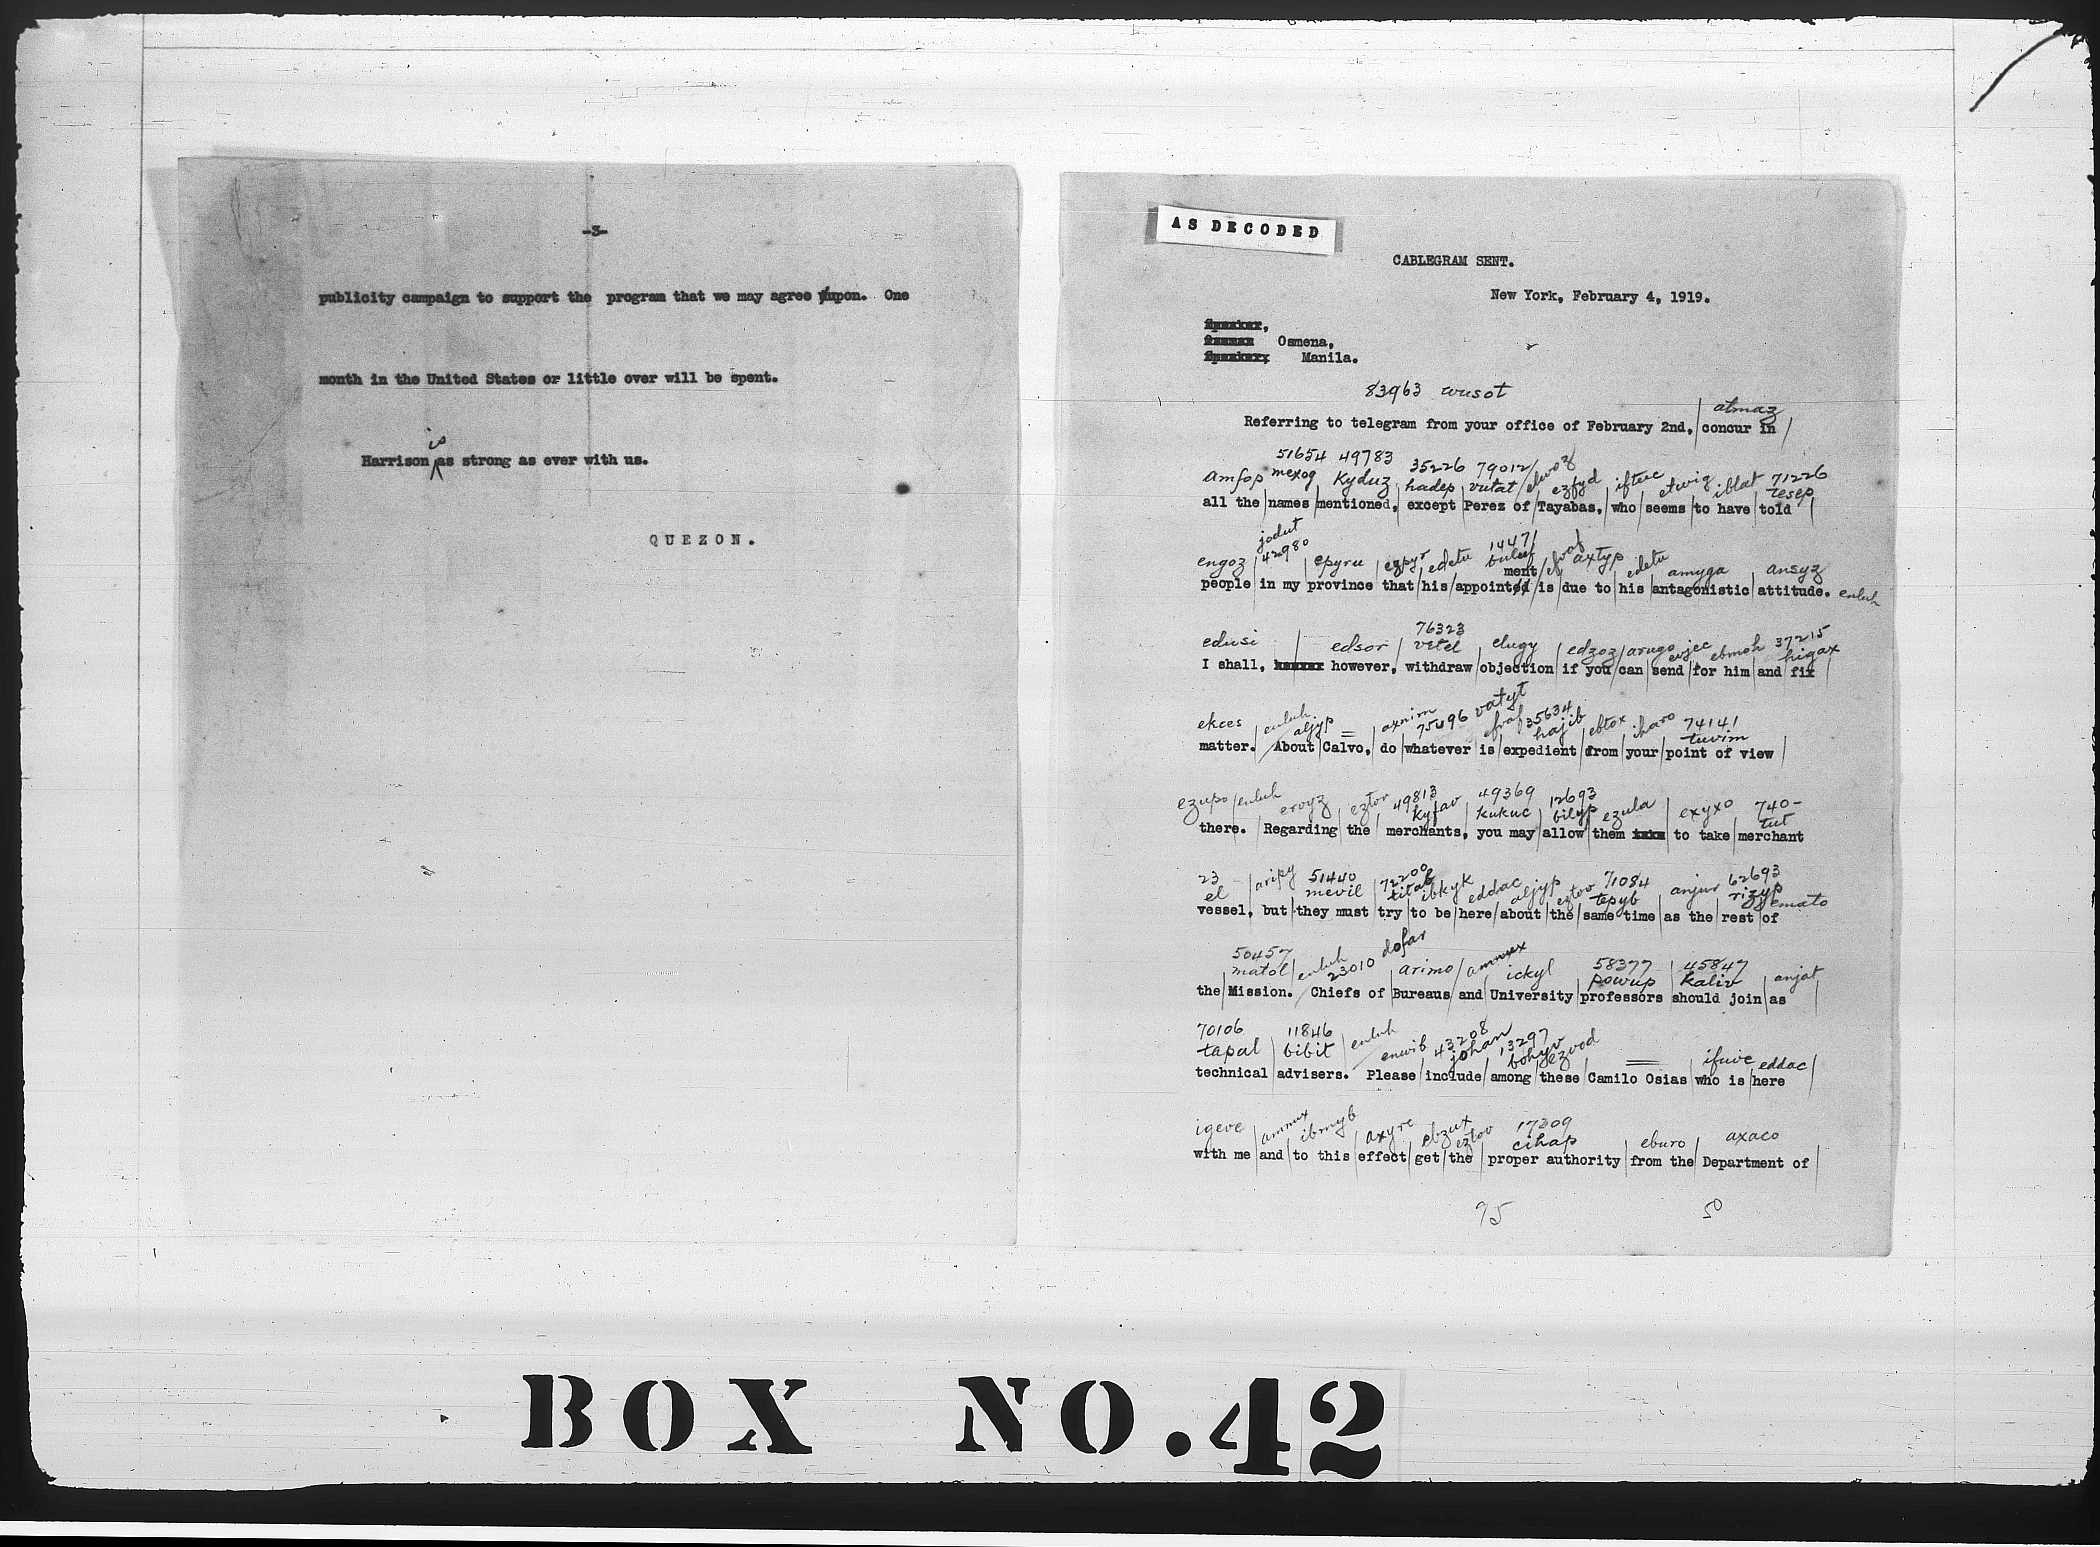 -3-
publicity campaign to support the program that we may agree upon. One
month in the United States or little over will be spent.
is
Harrison as strong as ever with us.
QUEZON.
AS DECODED
CABLEGRAM SENT.
New York, February 4, 1919.
Osmena,
Manila.
83963 wusot
atmaz
Referring to telegram from your office of February 2nd, concur in
51654 49783 35226 79012
amfop mexog kyduz hadep vutat ezfyd iftuc etwig iblat 71226
tesep
all the names mentioned, except Perez of Tayabas, who seems to have told
jodut
engoz 42980 epyru ezpyr edetu 14471 axtyp edetu amyga ansyz
ment
people in my province that his appointed is due to his antagonistic attitude. enluh
76323
edusi edsor vetel elugy edzoz arugo evjec ebmoh 37215
higax
I shall, however, withdraw objection if you can send for him and fix
ekces enluh aljyp axnim 75496 vatyt efvof 35634 hajib ebtox iharo 74141
tuvim
matter. About Calvo, do whatever is expedient from your point of view
ezupo enluh evoyz eztov 49813 49369 12693
kyfav kukuc bilyp ezula exyxo 740-
tut
there. Regarding the merchants, you may allow them to take merchant
23 aripy 51440 72200 71084 62693
el mevil titab ibkyk eddac aljyp eztov tepyb anjur rizyp emato
vessel, but they must try to be here about the same time as the rest of
50457 dofar
matol enluh 23010 arimo ammux ickyl 58377 45847
powup kaliv anjat
the Mission. Chiefs of Bureaus and University professors should join as
70106 11846 enluh 43208 13297
tapal bibit enwib johan bohyv ezvod ifuve eddac
technical advisers. Please include among these Camilo Osias who is here
igeve ammux ibmyb axyre ebzux eztov 17309
cihap eburo axaco
with me and to this effect get the proper authority from the Department of
95 50
BOX NO.42